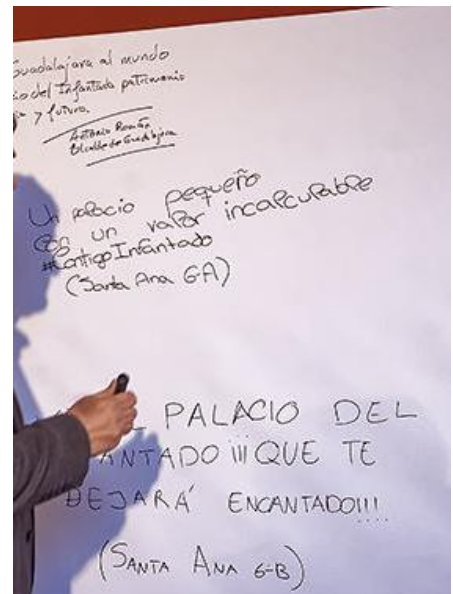 Guadalajara al mundo
del Infantado patrimonio
y futuro.
Antonio Román
Alcalde de Guadalajara
Un palacio pequeño
con un valor incalculable
#ContigoInfantado
(Santa Ana 6-A)
PALACIO DEL
ANTADO ¡¡¡QUE TE
DEJARÁ ENCANTADO!!!
(SANTA ANA 6-B)